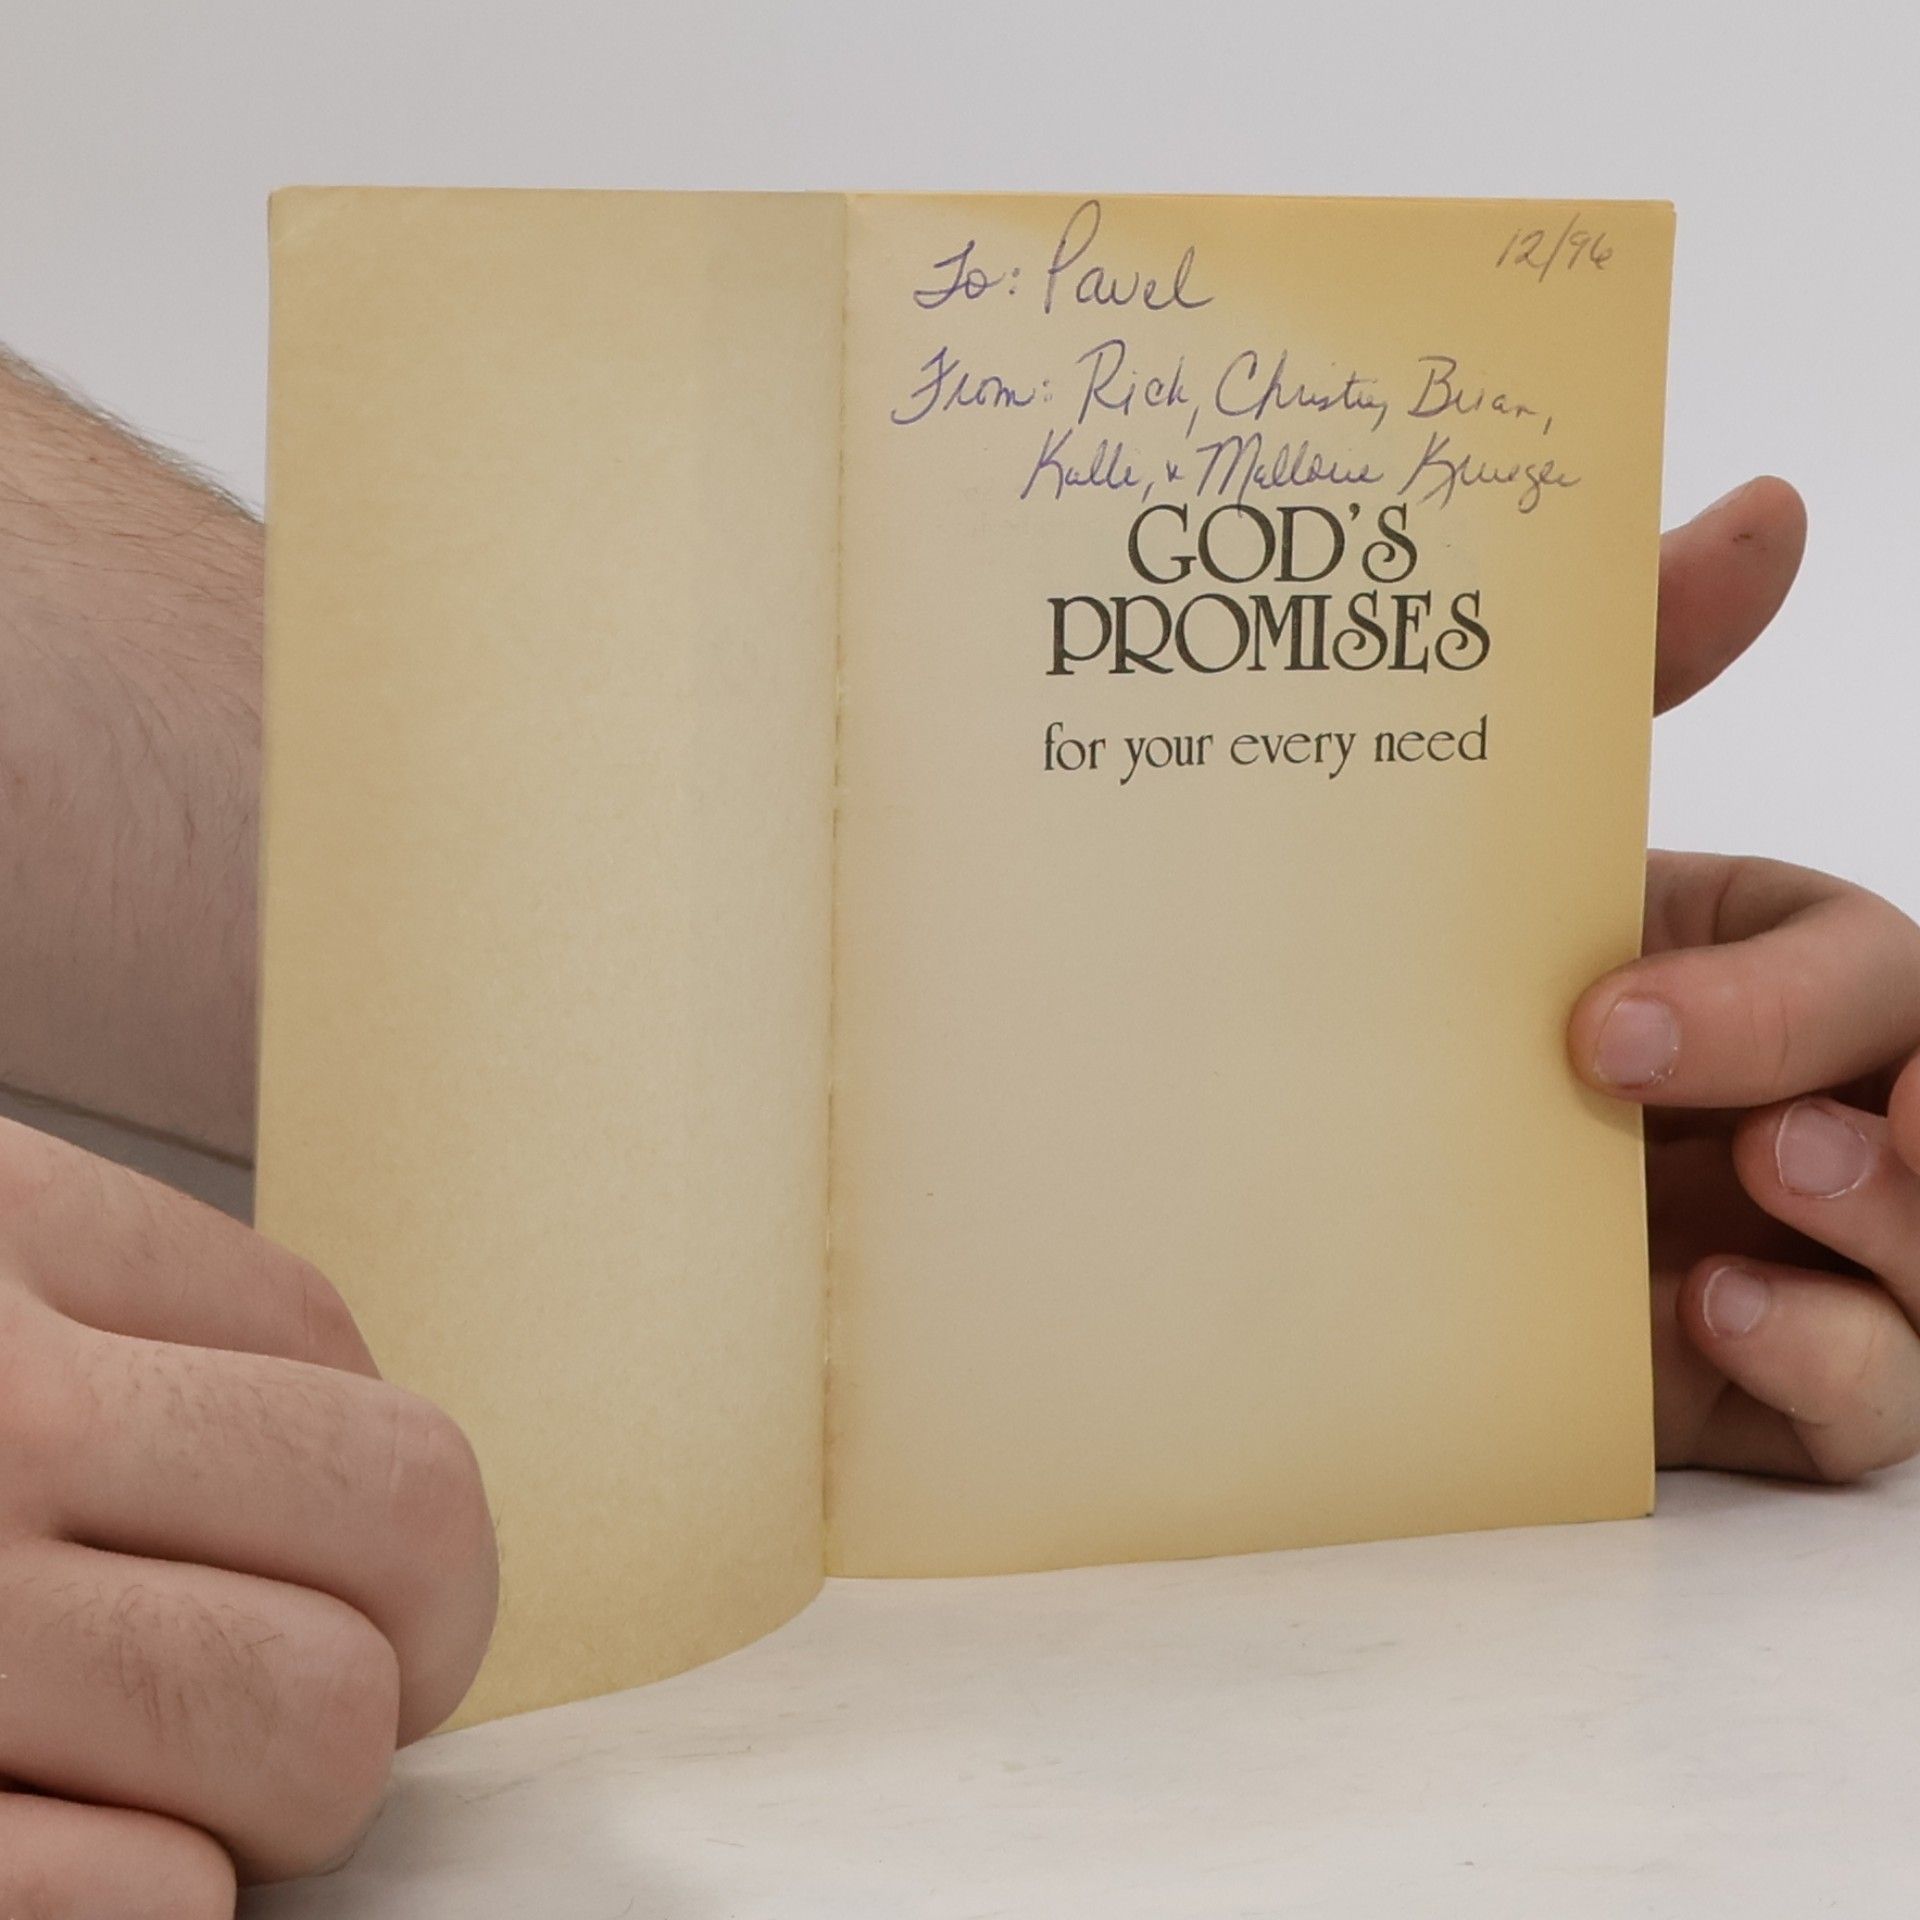 12/96
To: Pavel
From: Rick, Christy, Brian,
Kalli, & Mallorie Krueger
GOD'S
PROMISES
for your every need